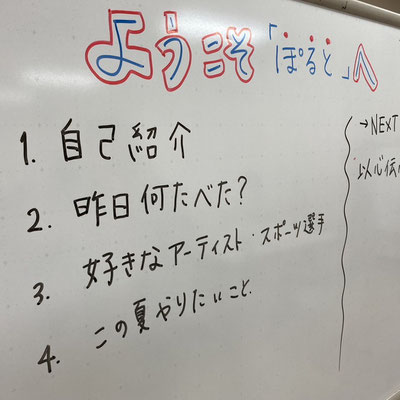 ようこそ「ぽると」へ
1. 自己紹介
2. 昨日何たべた?
3. 好きなアーティスト・スポーツ選手
4. この夏やりたいこと.
→NEXT
以心伝